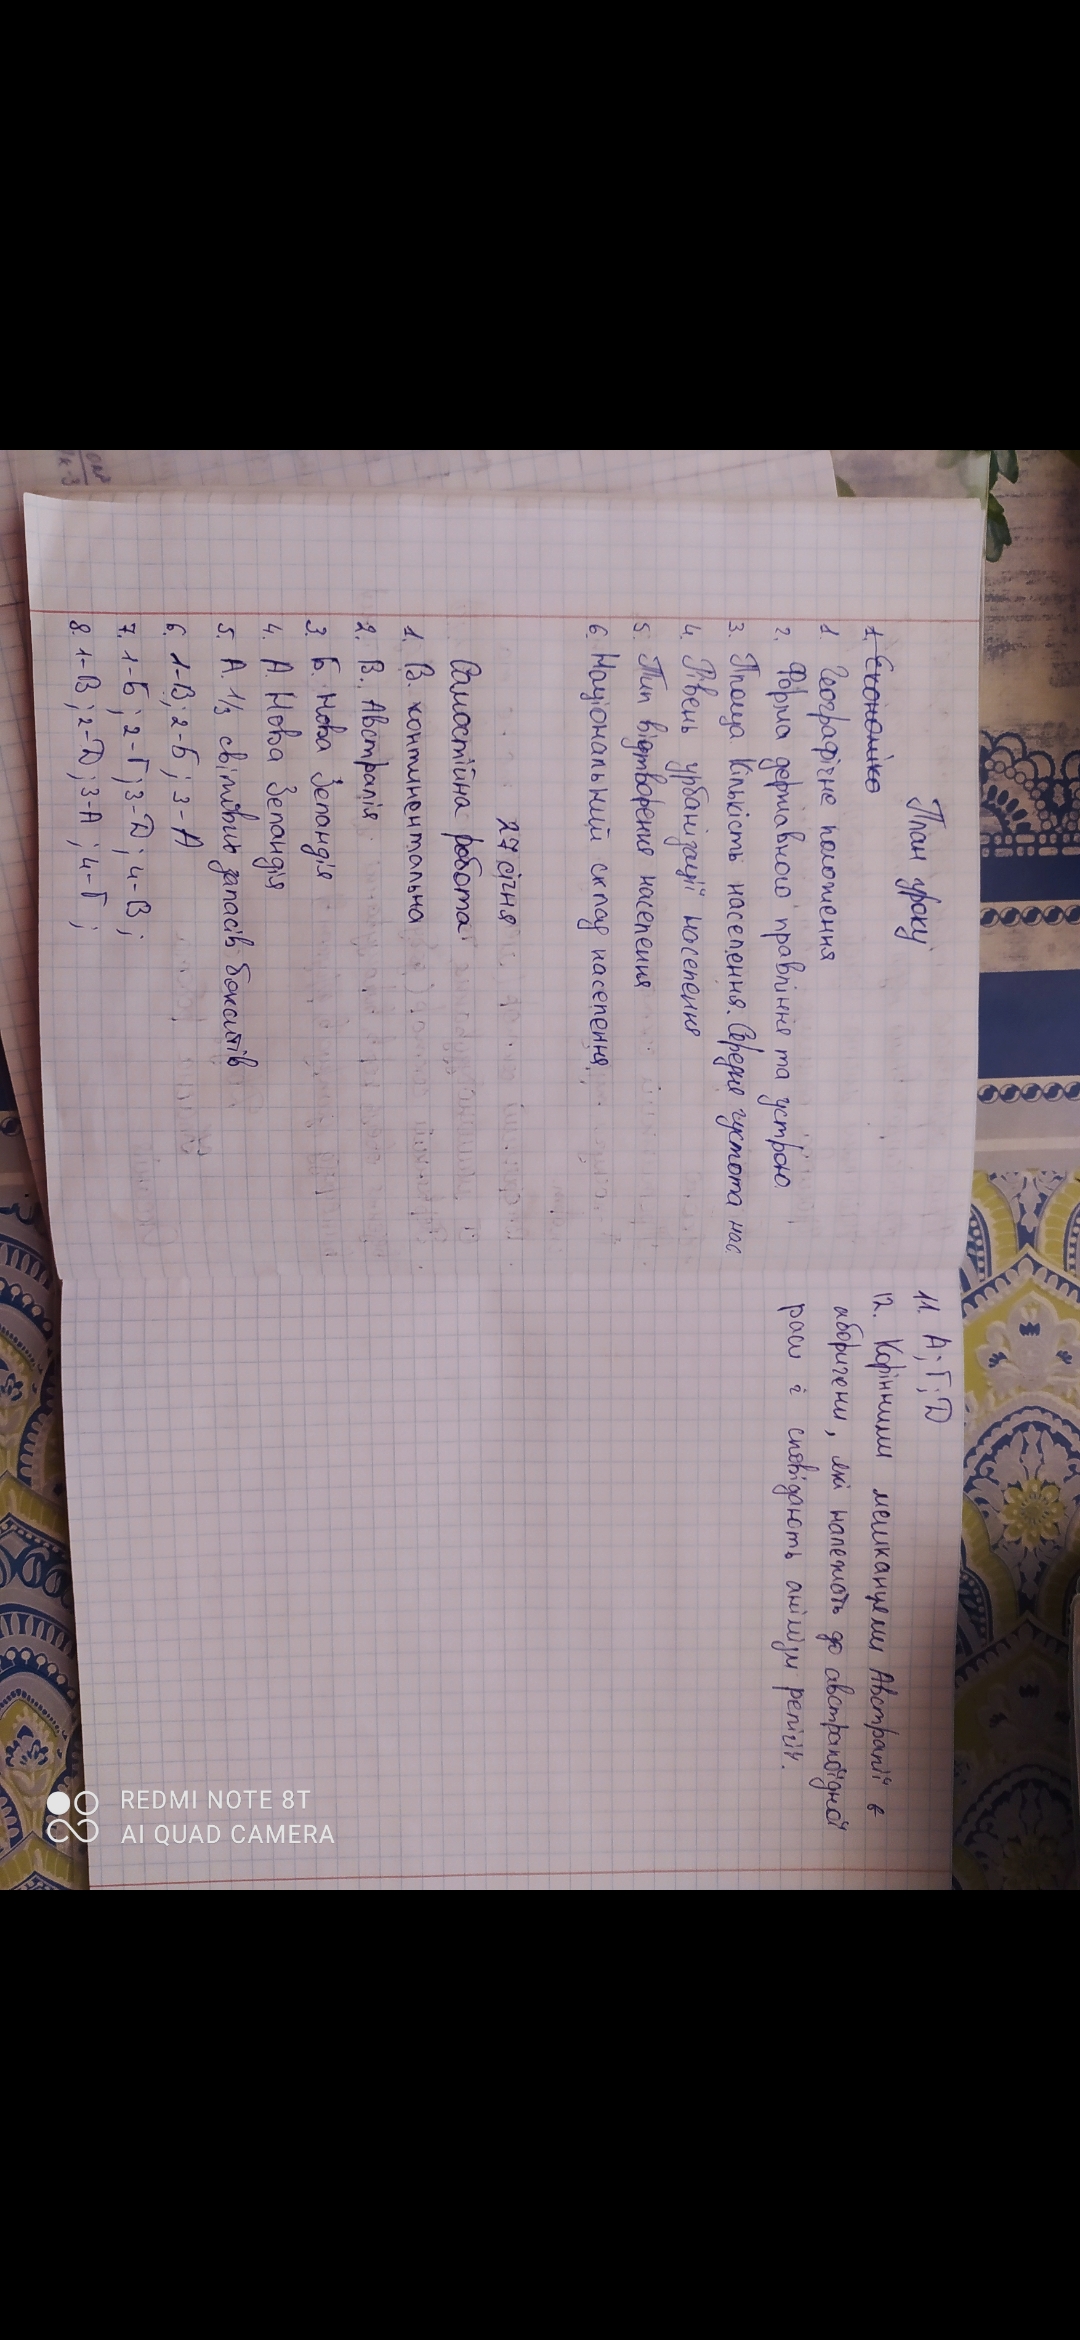 План уроку
1. Економіко
1. Географічне положення
2. Форма державного правління та устрою.
3. Площа. Кількість населення. Середня густота нас
4. Рівень урбанізації населення
5. Тип відтворення населення
6. Національний склад населення
27 січня
Самостійна робота
1. В. континентальна
2. В. Австралія
3. Б. Нова Зеландія
4. А. Нова Зеландія
5. А. 1/3 світових запасів бокситів
6. 1-В; 2-Б; 3-А
7. 1-Б; 2-Г; 3-Д; 4-В;
8. 1-В; 2-Д; 3-А; 4-Г;
11. А; Г; Д
12. Корінними мешканцями Австралії є
аборигени, які належать до австралоїдної
раси і сповідають анімізм релігій.
REDMI NOTE 8T
AI QUAD CAMERA